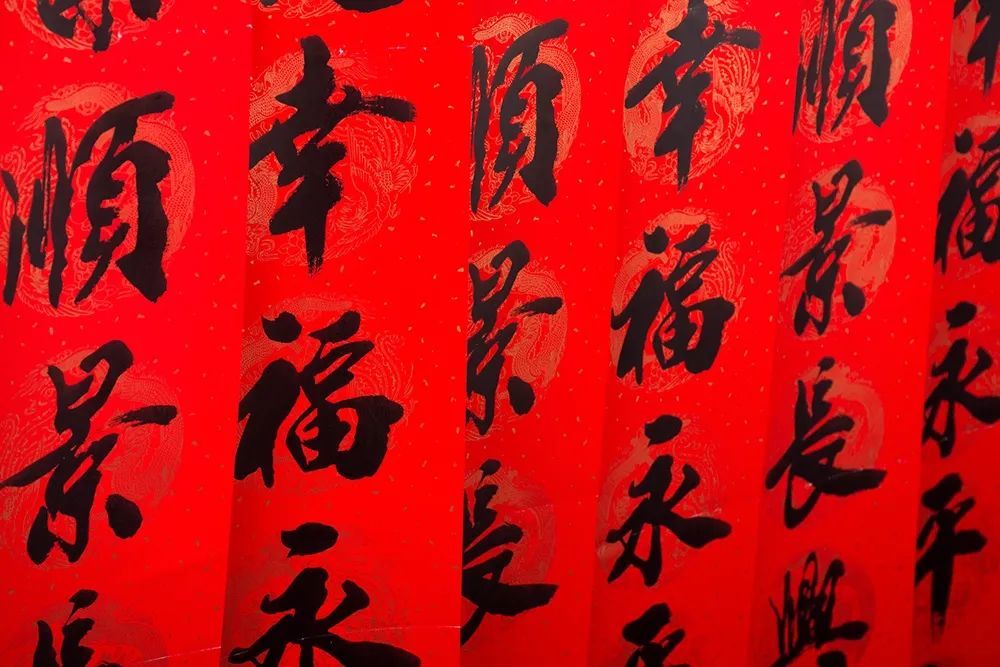 幸福永平
順景長興
幸福永
順景長
幸福永
順景長